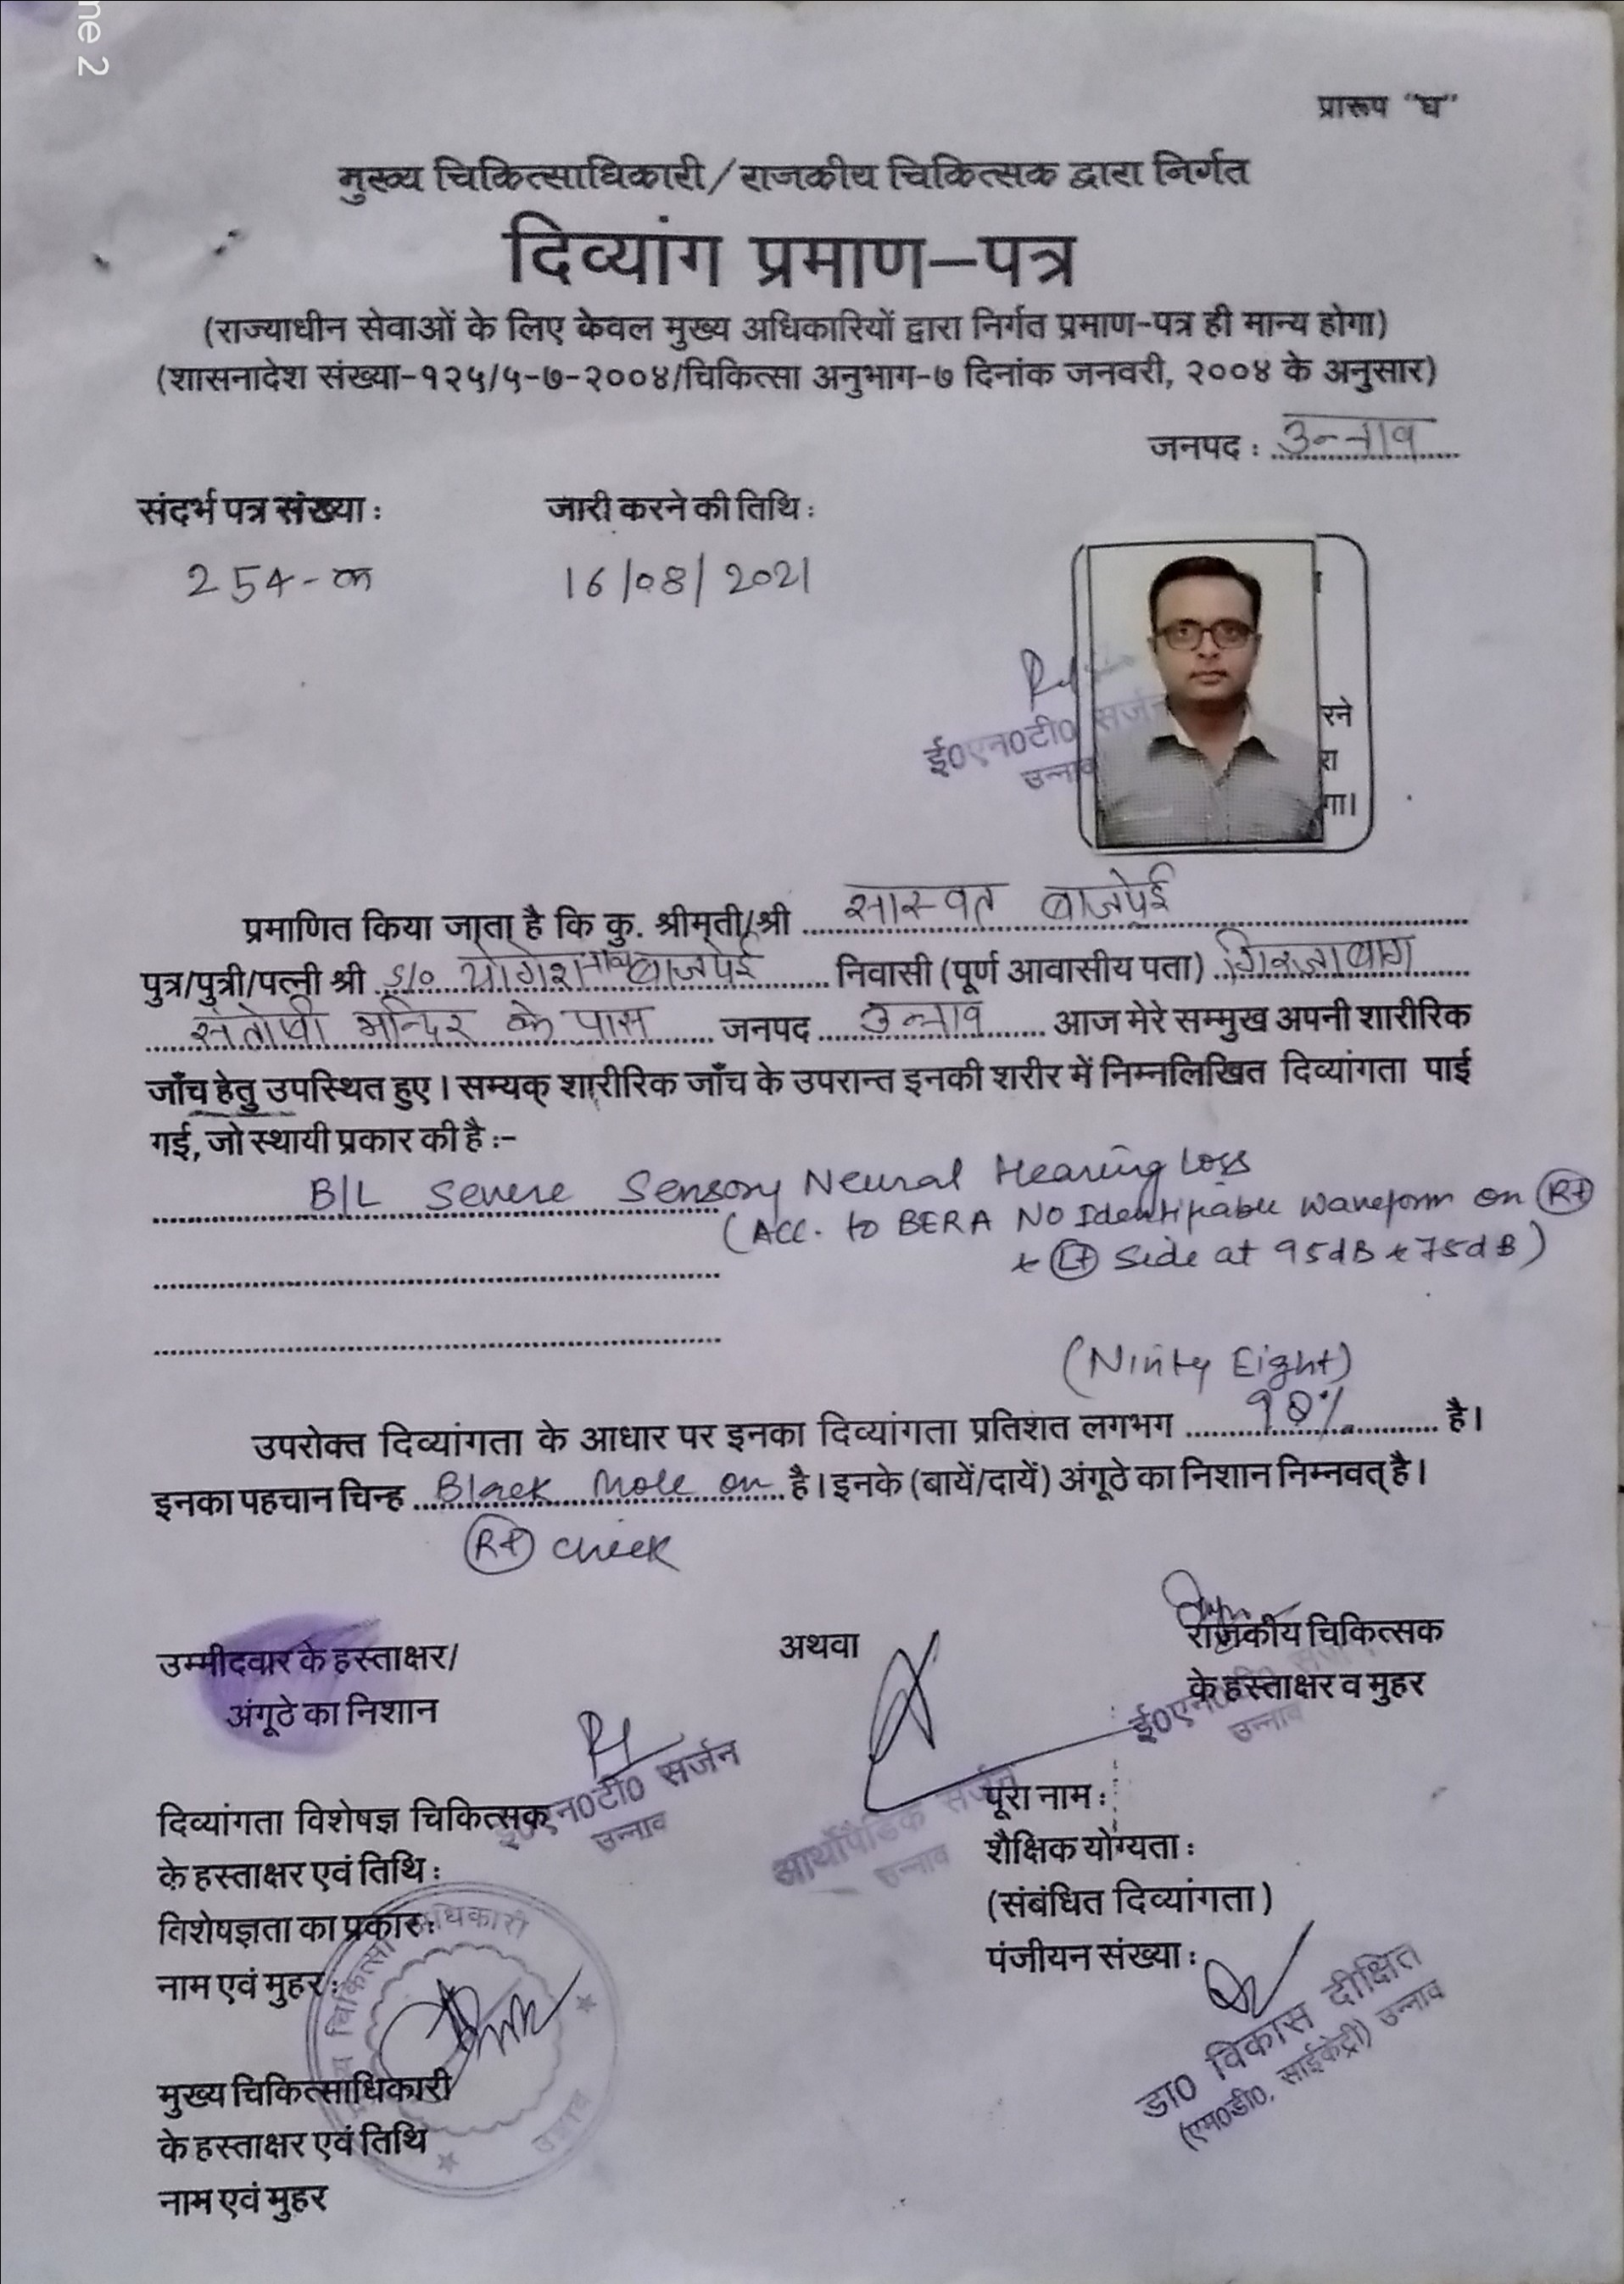 ne 2
प्रारूप "घ"
मुख्य चिकित्साधिकारी/राजकीय चिकित्सक द्वारा निर्गत
दिव्यांग प्रमाण–पत्र
(राज्याधीन सेवाओं के लिए केवल मुख्य अधिकारियों द्वारा निर्गत प्रमाण-पत्र ही मान्य होगा)
(शासनादेश संख्या-१२५/५-७-२००४/चिकित्सा अनुभाग-७ दिनांक जनवरी, २००४ के अनुसार)
जनपद : उन्नाव
संदर्भ पत्र संख्या : जारी करने की तिथि :
254-क 16/08/2021
रने
ई०एन०टी० सर्जन
रा
उन्नाव
गा।
प्रमाणित किया जाता है कि कु. श्रीमती/श्री सास्वत बाजपेई
पुत्र/पुत्री/पत्नी श्री S/o योगेश नाथ बाजपेई निवासी (पूर्ण आवासीय पता) गिरजा बाग
संतोषी मन्दिर के पास जनपद उन्नाव आज मेरे सम्मुख अपनी शारीरिक
जाँच हेतु उपस्थित हुए। सम्यक् शारीरिक जाँच के उपरान्त इनकी शरीर में निम्नलिखित दिव्यांगता पाई
गई, जो स्थायी प्रकार की है :–
B/L Severe Sensory Neural Hearing Loss
(Acc. to BERA NO Identifiable waveform on Rt
& Lt Side at 95dB & 75dB)
(Ninty Eight)
उपरोक्त दिव्यांगता के आधार पर इनका दिव्यांगता प्रतिशत लगभग 98% है।
इनका पहचान चिन्ह Black Mole on है। इनके (बायें/दायें) अंगूठे का निशान निम्नवत् है।
Rt cheek
उम्मीदवार के हस्ताक्षर/ अथवा राजकीय चिकित्सक
अंगूठे का निशान के हस्ताक्षर व मुहर
ई०एन०टी० सर्जन
उन्नाव
ई०एन०टी० सर्जन
उन्नाव
आर्थोपैडिक सर्जन
उन्नाव
पूरा नाम :
दिव्यांगता विशेषज्ञ चिकित्सक
शैक्षिक योग्यता :
के हस्ताक्षर एवं तिथि :
(संबंधित दिव्यांगता)
विशेषज्ञता का प्रकार :
पंजीयन संख्या :
नाम एवं मुहर :
चिकित्सा अधिकारी
उन्नाव
डा० विकास दीक्षित
(एम०डी०, साईकेट्री) उन्नाव
मुख्य चिकित्साधिकारी
के हस्ताक्षर एवं तिथि
नाम एवं मुहर